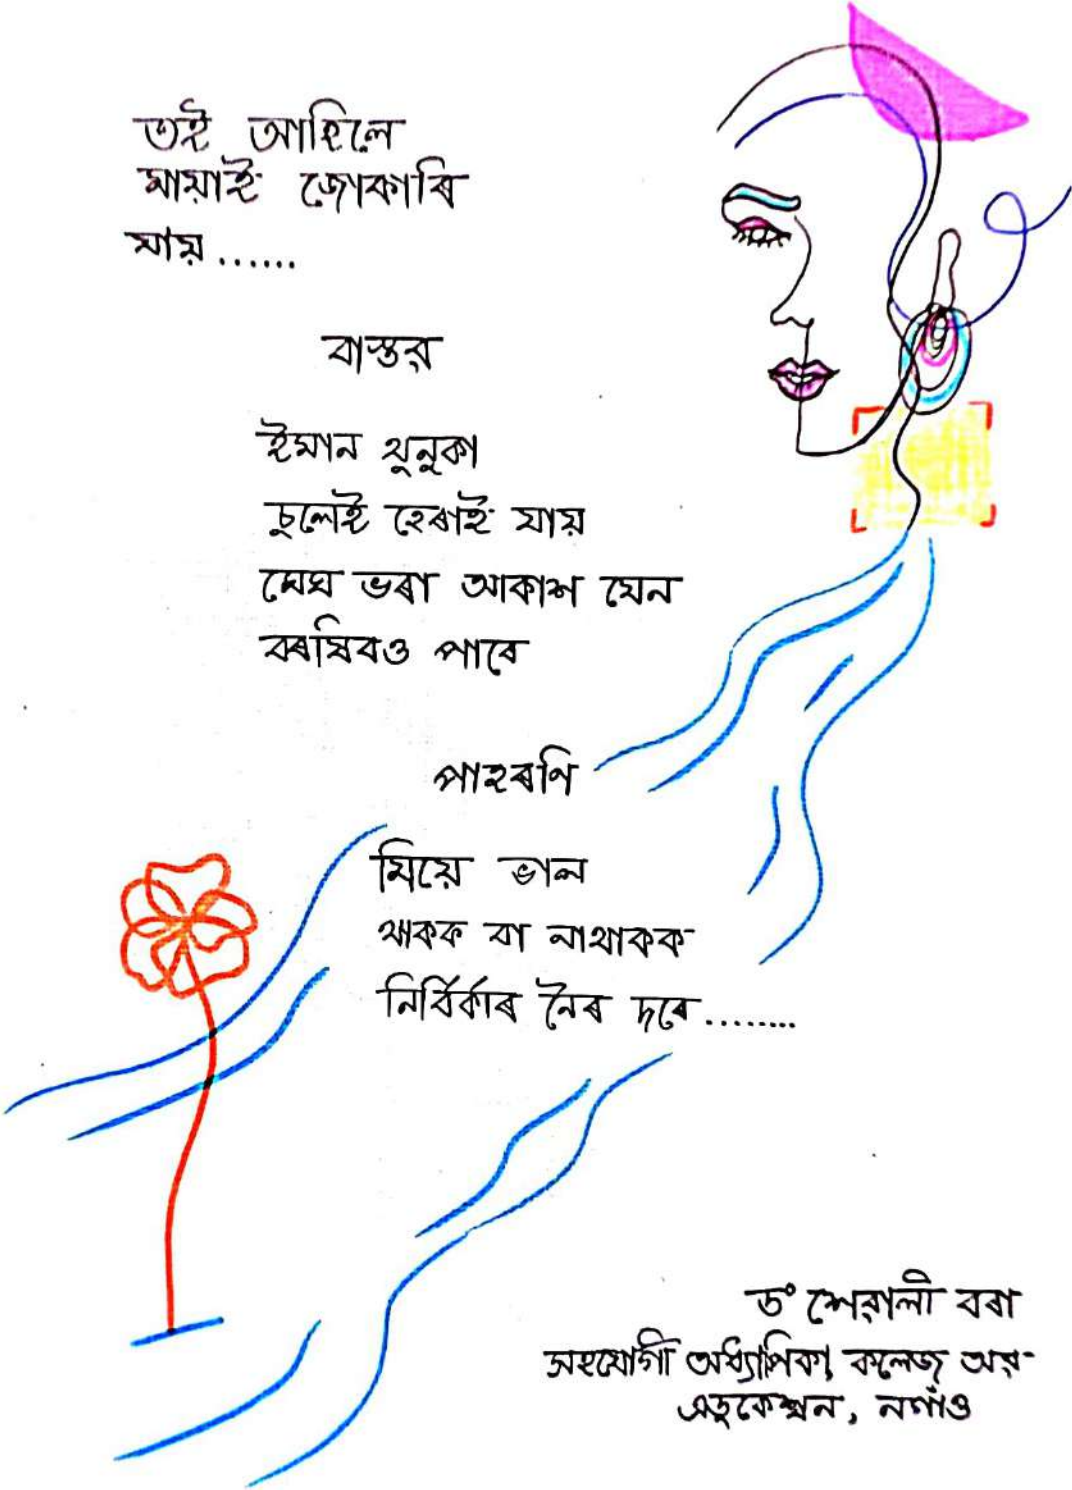 তই আহিলে
মায়াই জোকাৰি
যায়......
বাস্তৱ
ইমান থুনুকা
চুলেই হেৰাই যায়
মেঘ ভৰা আকাশ যেন
বৰষিবও পাৰে
পাহৰণি
মিয়ে ভাল
থাকক বা নাথাকক
নিৰ্বিৰ্কাৰ নৈৰ দৰে........
ড° শেৱালী বৰা
সহযোগী অধ্যাপিকা, কলেজ অৱ
এডুকেশ্বন, নগাঁও